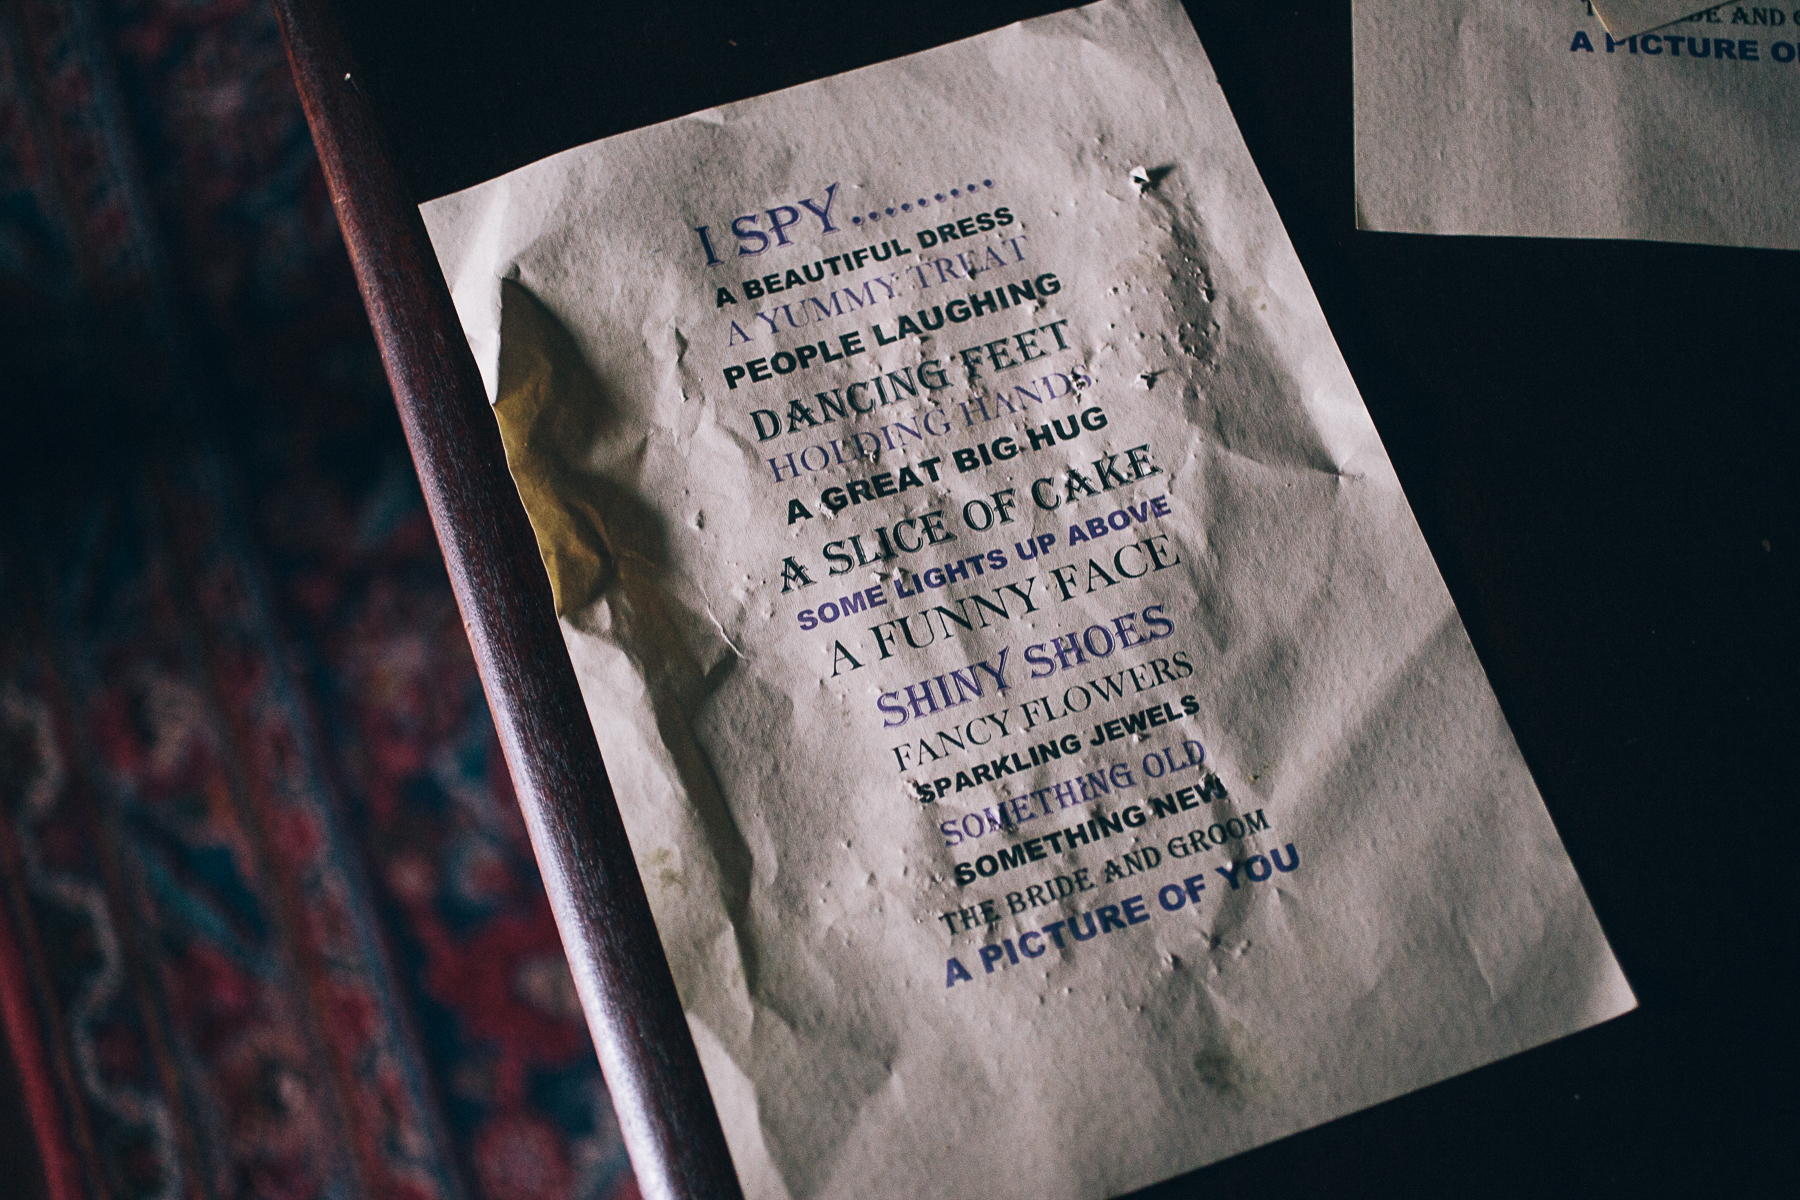 I SPY.........
A BEAUTIFUL DRESS
A YUMMY TREAT
PEOPLE LAUGHING
DANCING FEET
HOLDING HANDS
A GREAT BIG HUG
A SLICE OF CAKE
SOME LIGHTS UP ABOVE
A FUNNY FACE
SHINY SHOES
FANCY FLOWERS
SPARKLING JEWELS
SOMETHING OLD
SOMETHING NEW
THE BRIDE AND GROOM
A PICTURE OF YOU
AND
A PICTURE